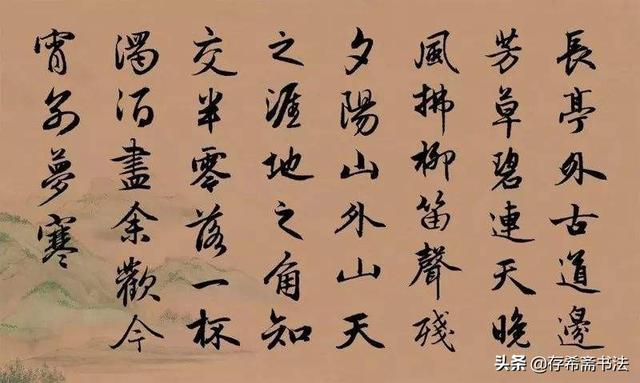 長亭外古道邊
芳草碧連天晚
風拂柳笛聲殘
夕陽山外山天
之涯地之角知
交半零落一杯
濁酒盡余歡今
宵別夢寒
头条 @存希斋书法